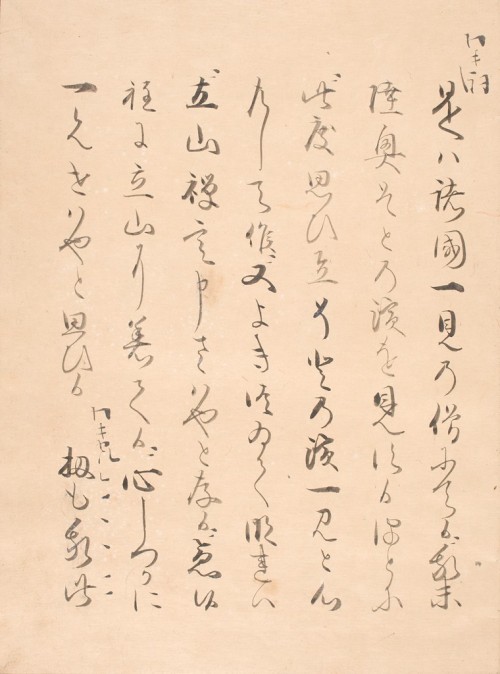 ワキ詞
是ハ諸國一見乃僧にて候我未
陸奥そとの濱を見す候ほとに
此度思ひ立そとの濱一見と心
さし候又よき次
立山禅定申さはやと存候急候
程に立山に着て候心しつかに
一見せはやと思ひ候
ワキ
扨も我此